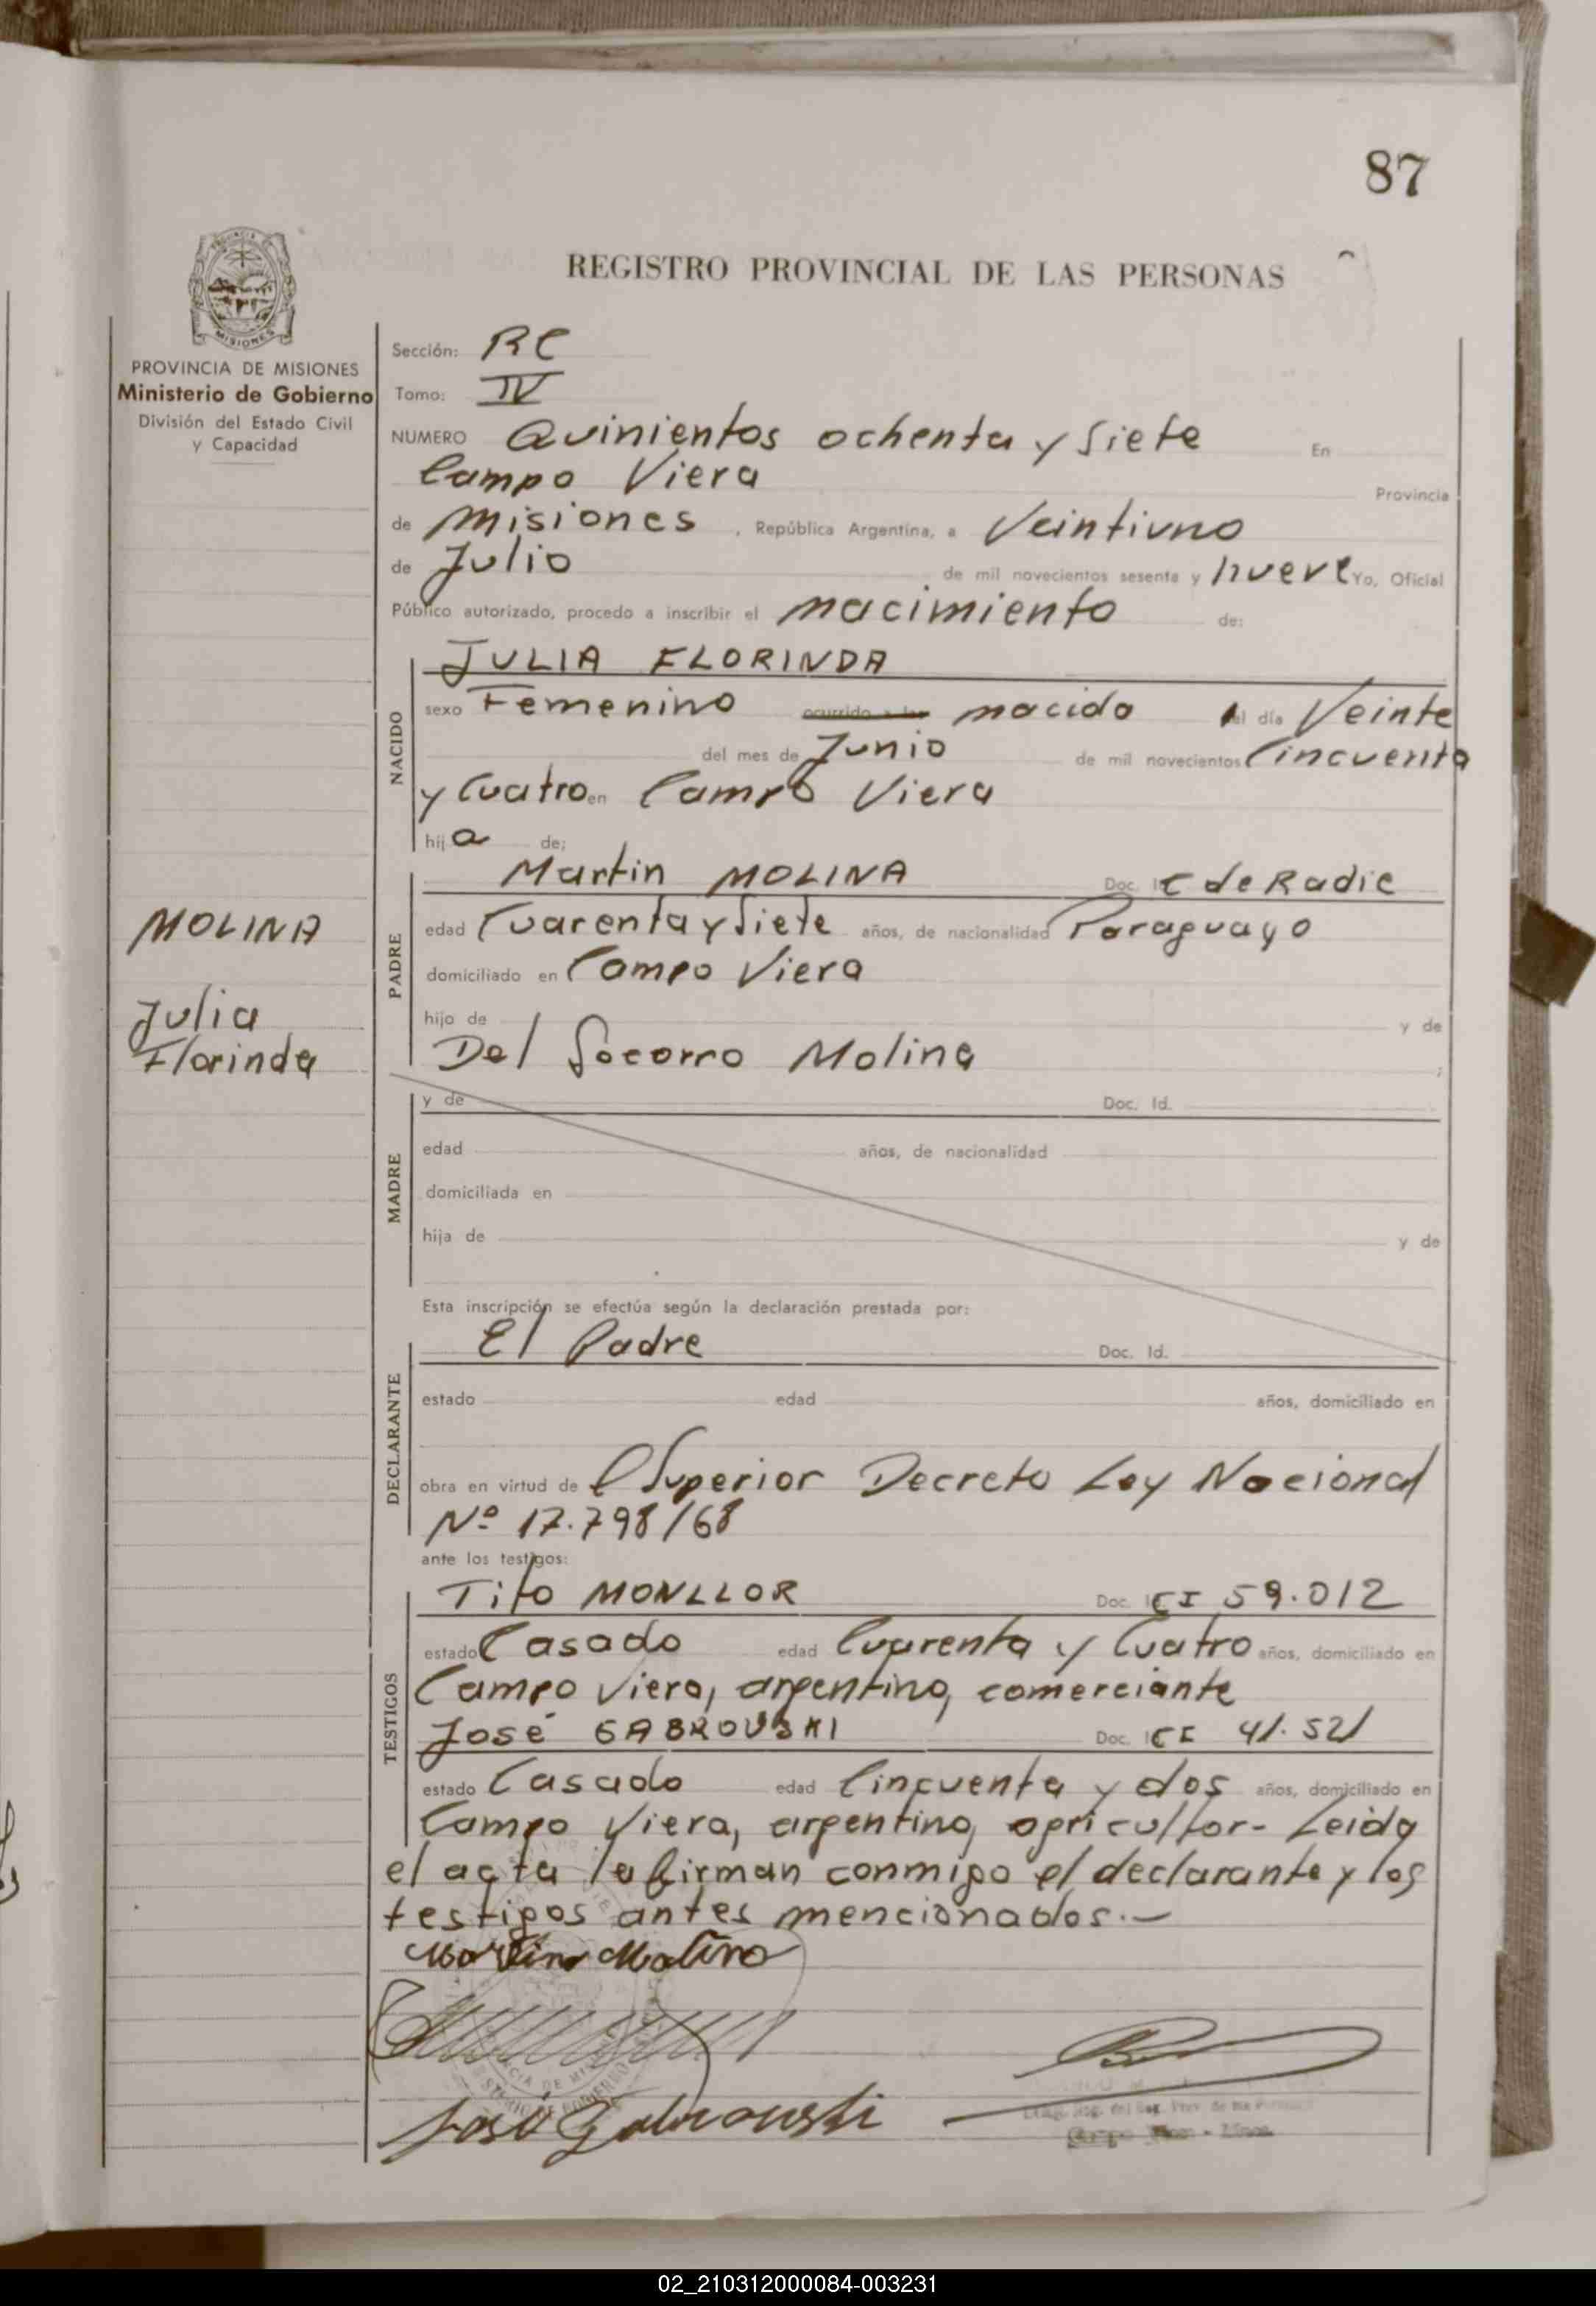 87
REGISTRO PROVINCIAL DE LAS PERSONAS
PROVINCIA DE MISIONES
Ministerio de Gobierno
División del Estado Civil
y Capacidad
Sección: RC
Tomo: IV
NUMERO Quinientos ochenta y Siete En
Campo Viera Provincia
de Misiones , República Argentina, a Veintiuno
de Julio de mil novecientos sesenta y nueve Yo, Oficial
Público autorizado, procedo a inscribir el nacimiento de:
JULIA FLORINDA
NACIDO
sexo Femenino ocurrido a las nacida el día Veinte
del mes de Junio de mil novecientos Cincuenta
y Cuatro en Campo Viera
hija de:
Martin MOLINA Doc. I C de Radic
PADRE
edad Cuarenta y Siete años, de nacionalidad Paraguayo
domiciliado en Campo Viera
hijo de y de
Del Socorro Molina ;
MOLINA
Julia
Florinda
y de Doc. Id.
MADRE
edad años, de nacionalidad
domiciliada en
hija de y de
Esta inscripción se efectúa según la declaración prestada por:
El Padre Doc. Id.
DECLARANTE
estado edad años, domiciliado en
obra en virtud de el Superior Decreto Ley Nacional
Nº 17.798/68
ante los testigos:
Tito MONLLOR Doc. I CI 59.012
TESTIGOS
estado Casado edad Cuarenta y Cuatro años, domiciliado en
Campo Viera, argentino, comerciante
José GABROUSKI Doc. I CI 41.521
estado Casado edad Cincuenta y dos años, domiciliado en
Campo Viera, argentino, agricultor- Leida
el acta la firman conmigo el declarante y los
testigos antes mencionados.-
Martin Molina
José Gabrouski
02_210312000084-003231